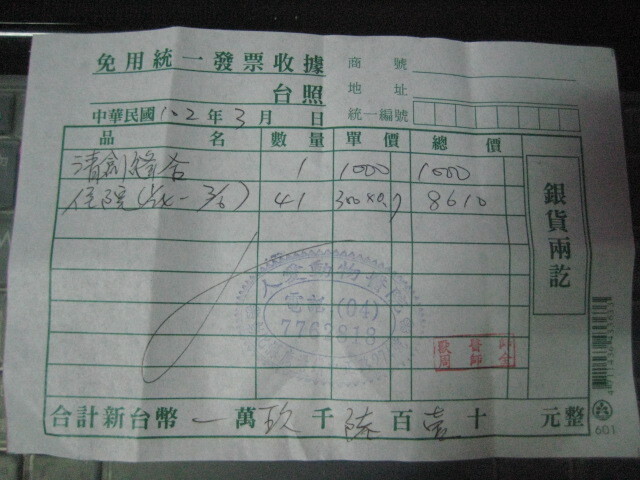 免用統一發票收據 商號
台照 地址
中華民國102年3月 日 統一編號
品名 數量 單價 總價
清創縫合 1 1000 1000
住院( - 3/6) 41 300×0.7 8610
銀貨兩訖
動物
電話(04)
7762818
醫師
合計新台幣一萬玖千陸百壹十 元整
601